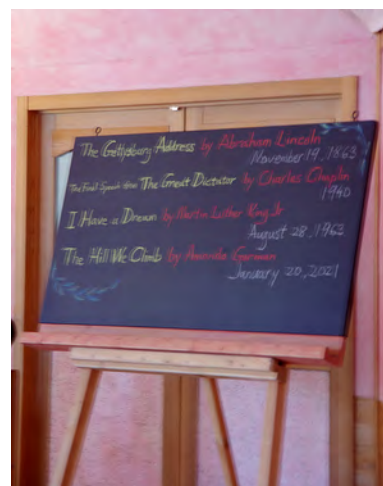 The Gettysburg Address by Abraham Lincoln
November 19, 1863
The Final Speech from The Great Dictator by Charles Chaplin
1940
I Have a Dream by Martin Luther King Jr
August 28, 1963
The Hill We Climb by Amanda Gorman
January 20, 2021